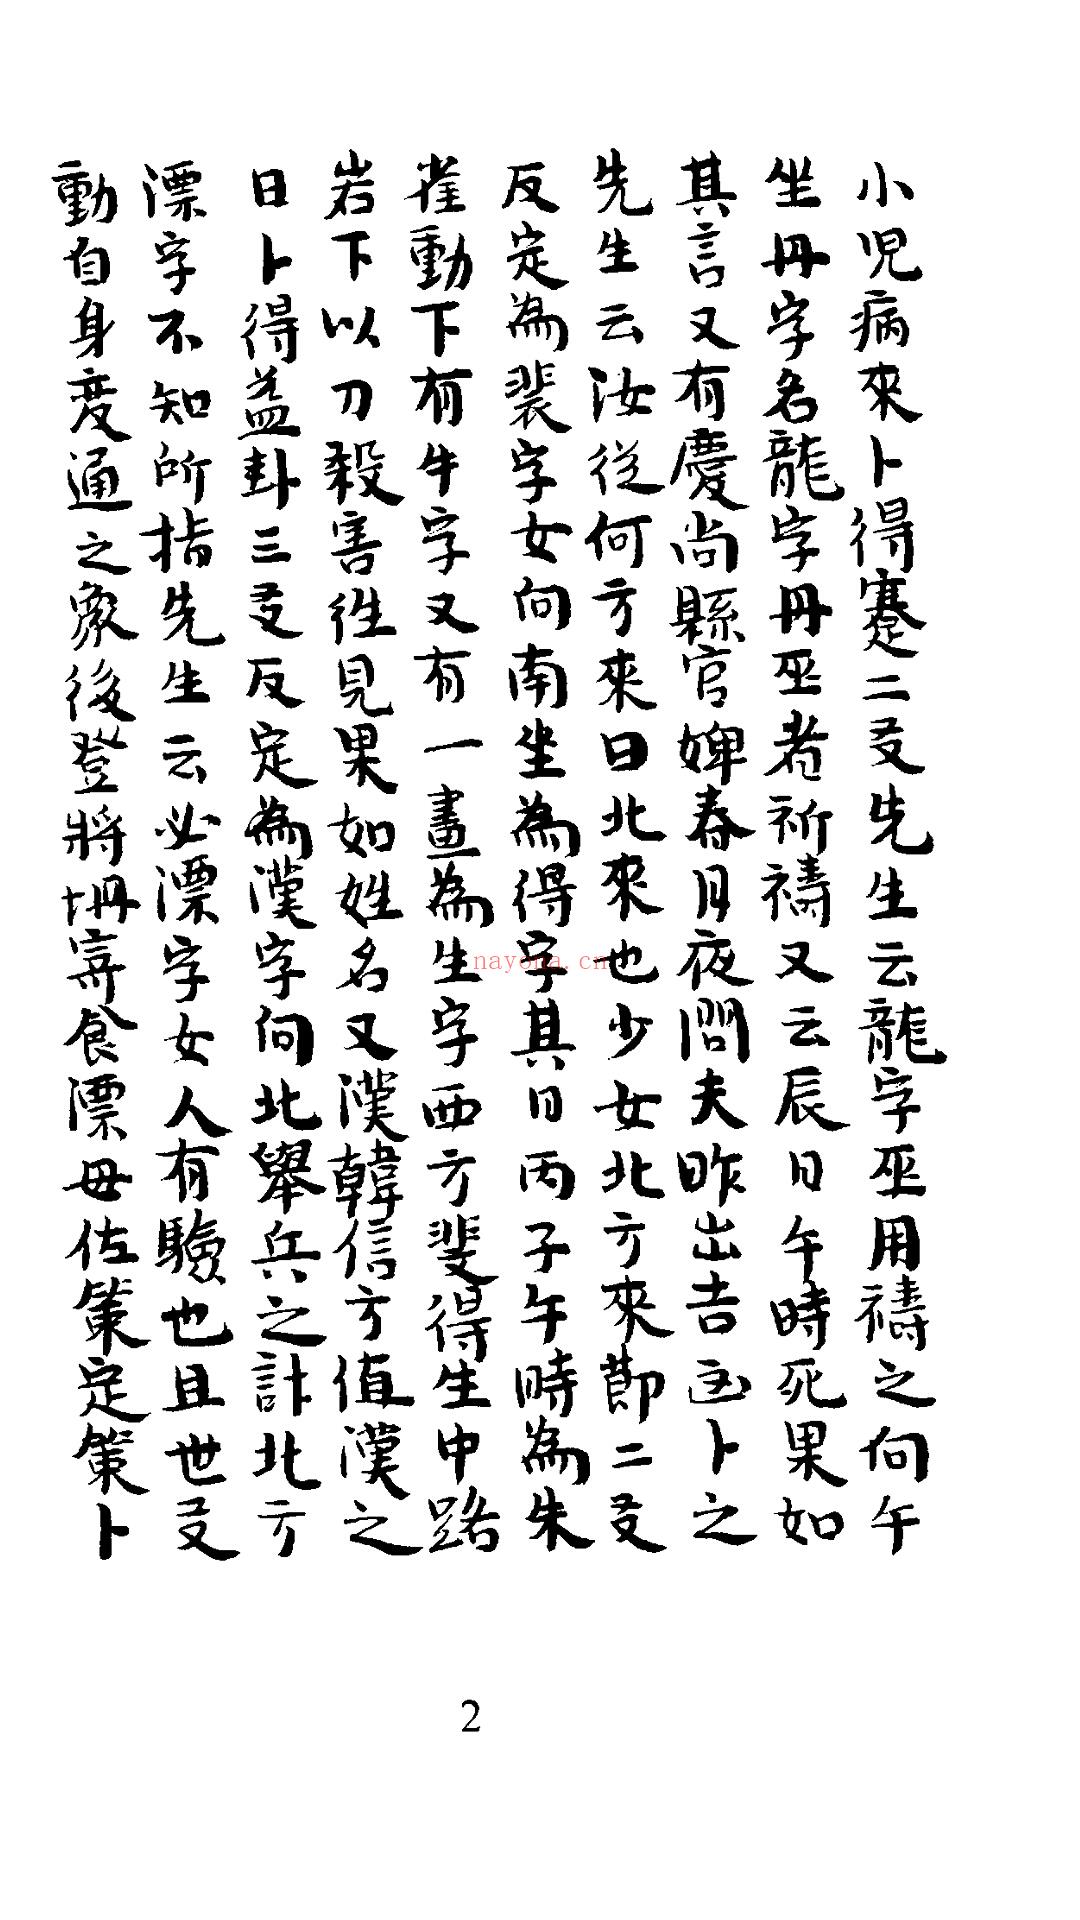 小児病來卜得蹇二爻先生云龍字巫用禱之向午
坐冊字名龍字冊巫者祈禱又云辰日午時死果如
其言又有慶尚縣官婢春月夜問夫昨出吉凶卜之
先生云汝從何方來曰北來也少女北方來節二爻
反定為裴字女向南坐為得字其日丙子午時為朱
雀動下有牛字又有一畫為生字西方斐得生中路
岩下以刀殺害徃見果如姓名又漢韓信方值漢之
日卜得益卦三爻反定為漢字向北舉兵之計北方
漂字不知所指先生云必漂字女人有驗也且世爻
動自身變通之象後登將坍寄食漂母佐策定策卜
nayona.cn
2